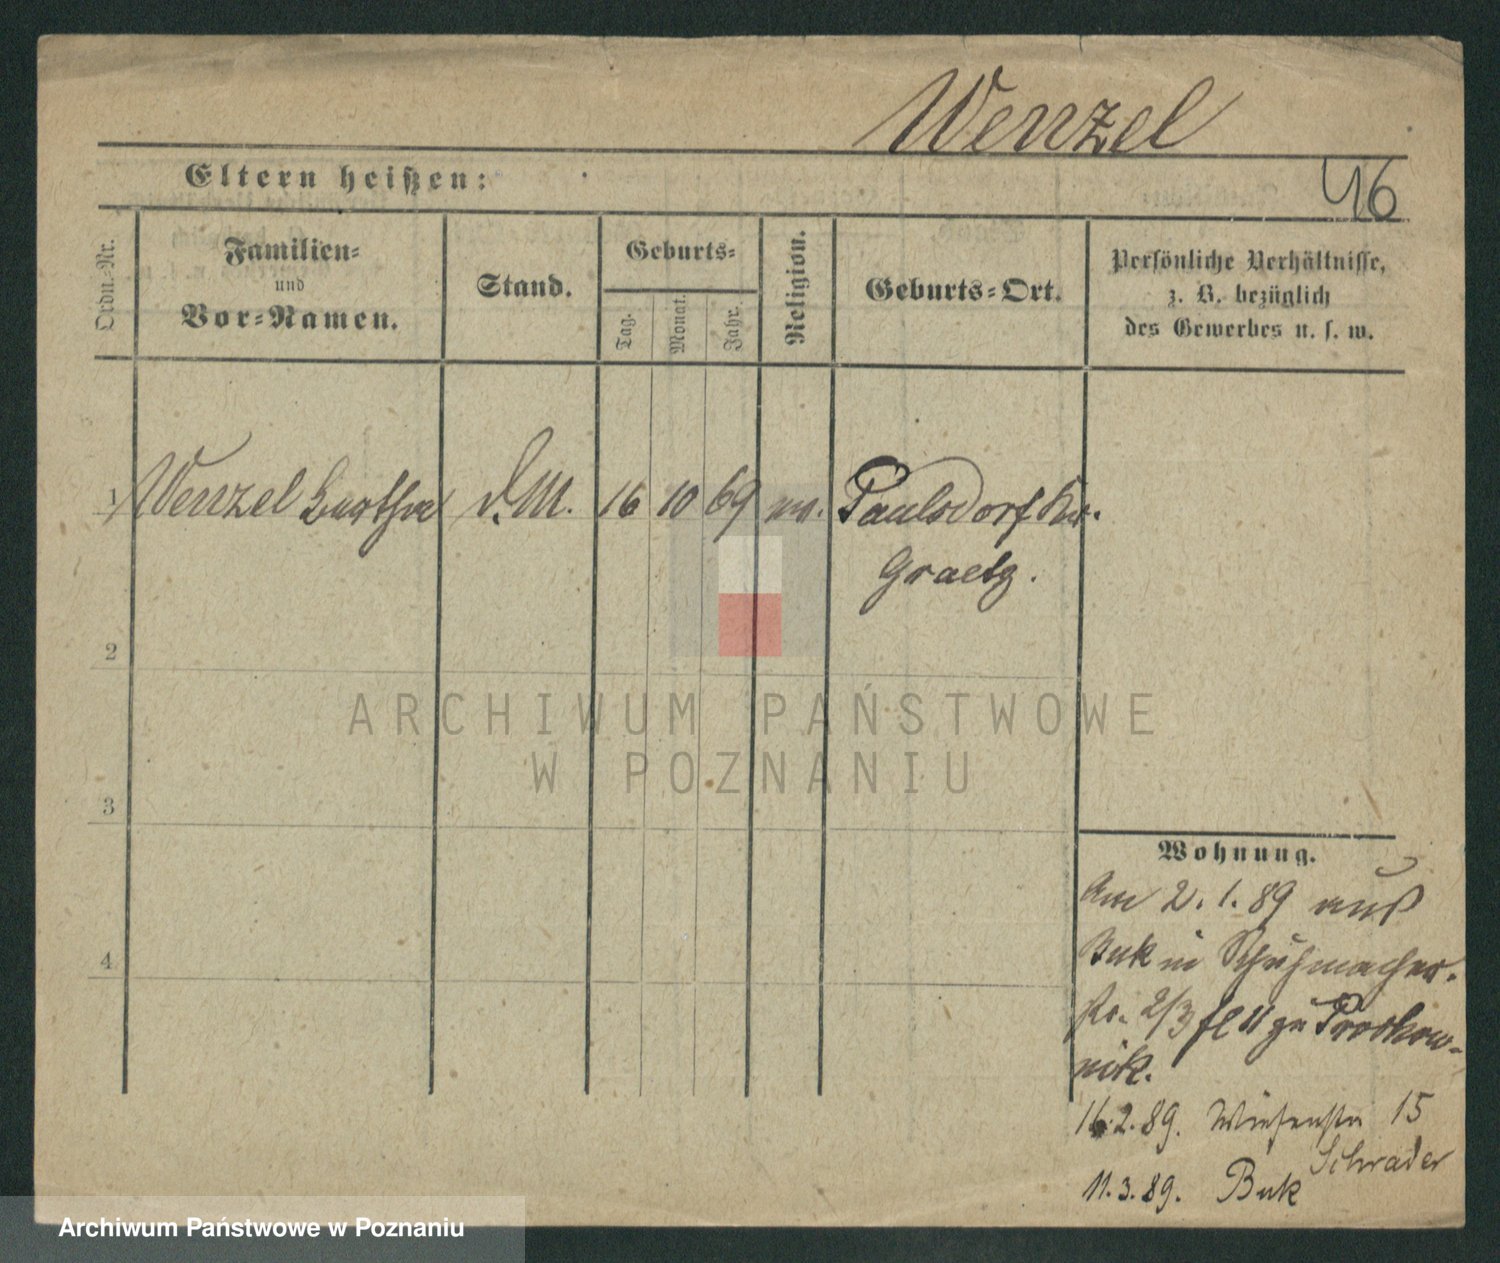 Wenzel
46
Eltern heißen:
Ordn.-Nr.
Familien-
und
Vor-Namen.
Stand.
Geburts-
Tag.
Monat.
Jahr.
Religion.
Geburts-Ort.
Persönliche Verhältnisse,
z. B. bezüglich
des Gewerbes u. s. w.
1 Wenzel Bertha d. M. 16 10 69 Paulsdorf Kr.
Graetz.
2
3
4
Wohnung.
Am 2. 1. 89 aus
Buk in Schuhmacher-
str. 2/3 zu
nik.
16. 2. 89. Wiesenstr 15
Schrader
11. 3. 89. Buk
ARCHIWUM PAŃSTWOWE
W POZNANIU
Archiwum Państwowe w Poznaniu